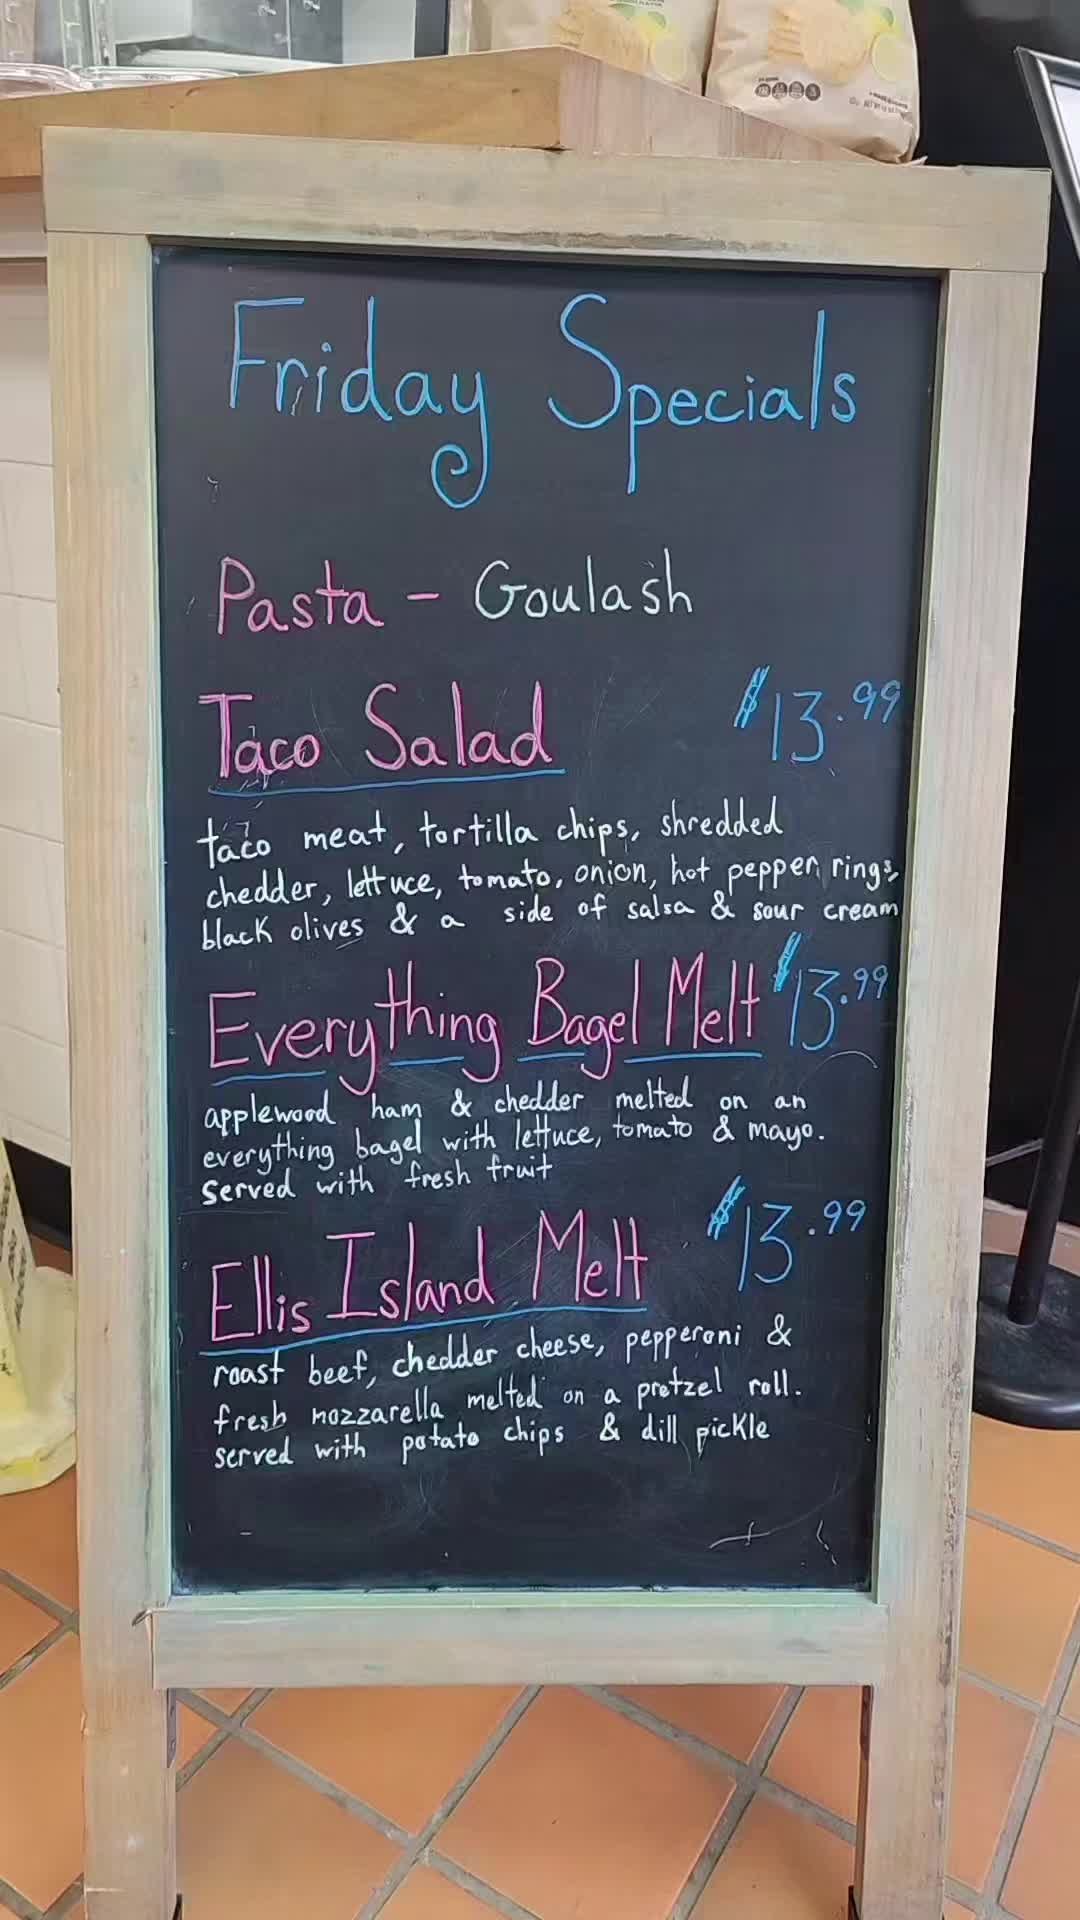 Friday Specials
Pasta - Goulash
Taco Salad $13.99
taco meat, tortilla chips, shredded
chedder, lettuce, tomato, onion, hot pepper rings,
black olives & a side of salsa & sour cream
Everything Bagel Melt $13.99
applewood ham & chedder melted on an
everything bagel with lettuce, tomato & mayo.
served with fresh fruit
Ellis Island Melt $13.99
roast beef, chedder cheese, pepperoni &
fresh mozzarella melted on a pretzel roll.
served with potato chips & dill pickle